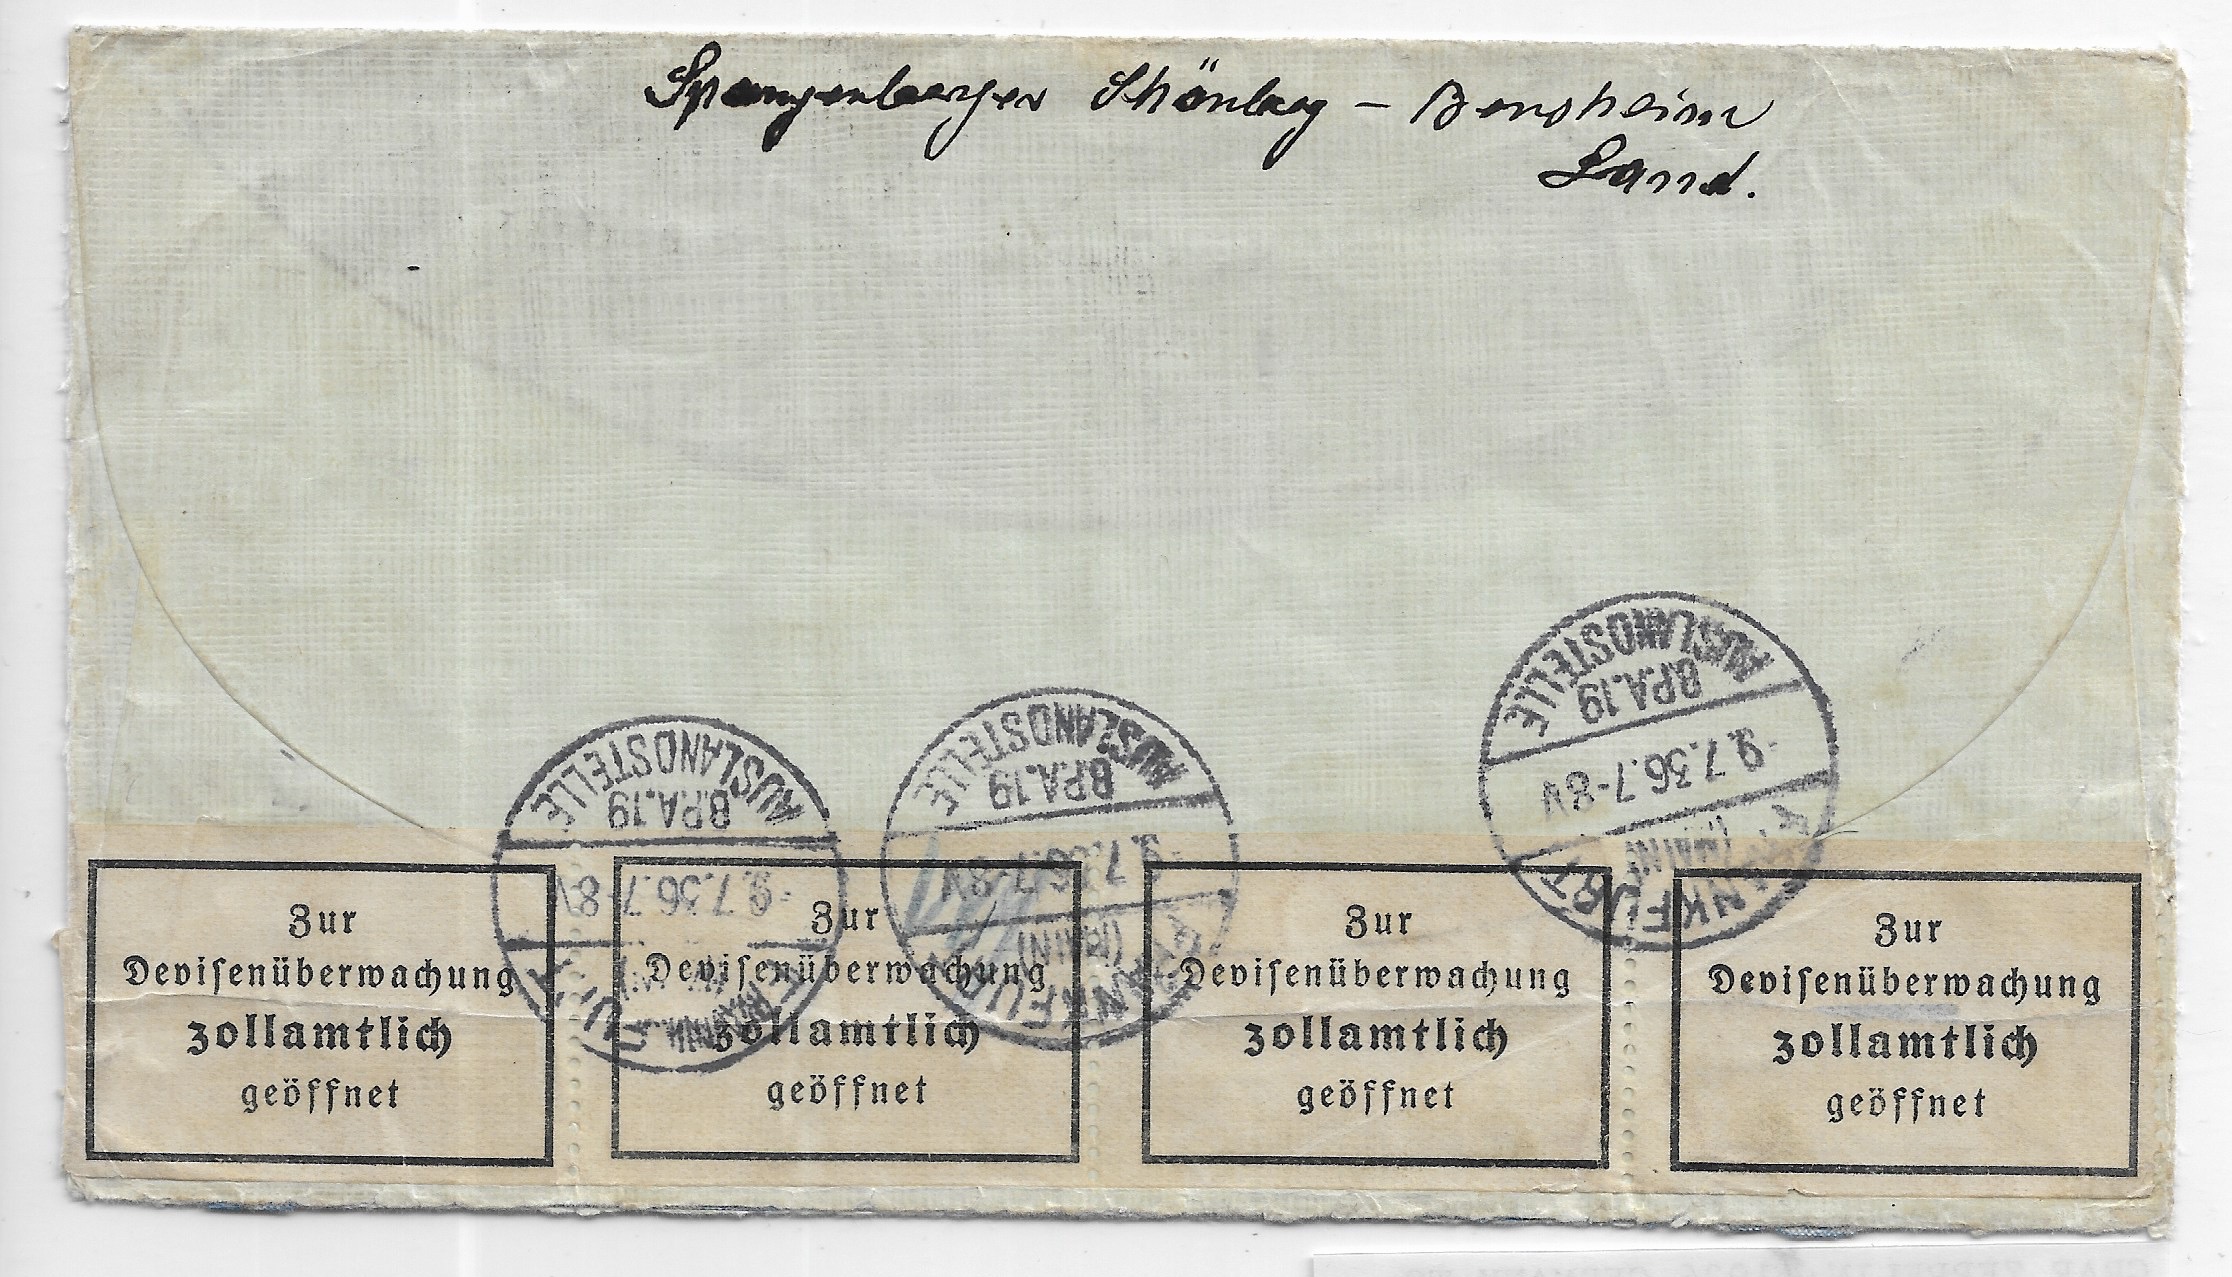 Spangenberger Schönberg – Bensheim
Land.
AUSLANDSTELLE
B.P.A.19
-9.7.36.7-8V
FRANKFURT
(MAIN)
AUSLANDSTELLE
B.P.A.19
-9.7.36.7-8V
FRANKFURT
(MAIN)
AUSLANDSTELLE
B.P.A.19
-9.7.36.7-8V
FRANKFURT
(MAIN)
Zur
Devisenüberwachung
zollamtlich
geöffnet
Zur
Devisenüberwachung
zollamtlich
geöffnet
Zur
Devisenüberwachung
zollamtlich
geöffnet
Zur
Devisenüberwachung
zollamtlich
geöffnet